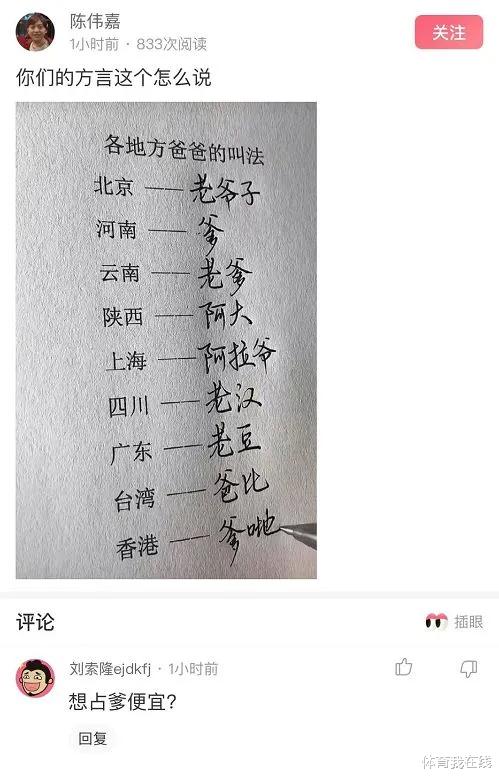 陈伟嘉
1小时前 · 833次阅读
关注
你们的方言这个怎么说
各地方爸爸的叫法
北京 —— 老爷子
河南 —— 爹
云南 —— 老爹
陕西 —— 阿大
上海 —— 阿拉爷
四川 —— 老汉
广东 —— 老豆
台湾 —— 爸比
香港 —— 爹哋
评论
插眼
刘索隆ejdkfj · 1小时前
想占爹便宜?
回复
体育我在线